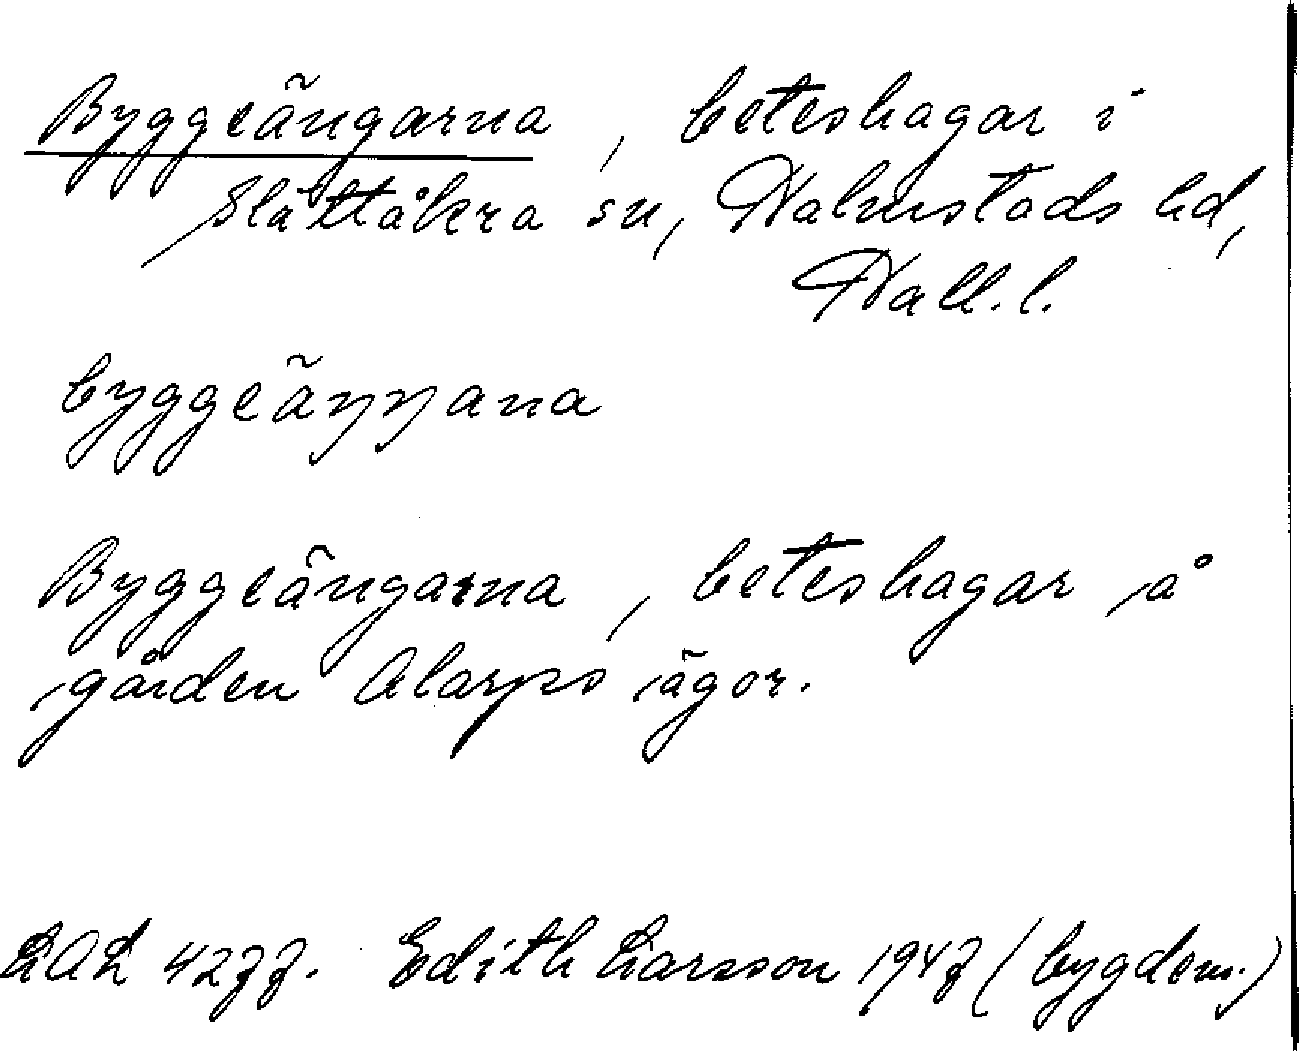 Byggeängarna, beteshagar i
Slättåkra sn, Halmstads hd,
Hall. l.
byggeäŋŋana
Byggeängarna, beteshagar å
gården Alarps ägor.
LAL 4277. Edith Larsson 1947 (bygdem.)